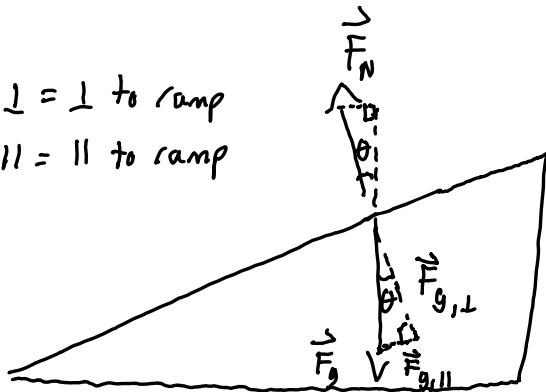 F⃗_N
⊥ = ⊥ to ramp
|| = || to ramp
θ
θ
F⃗_g,⊥
F⃗_g
F⃗_g,||